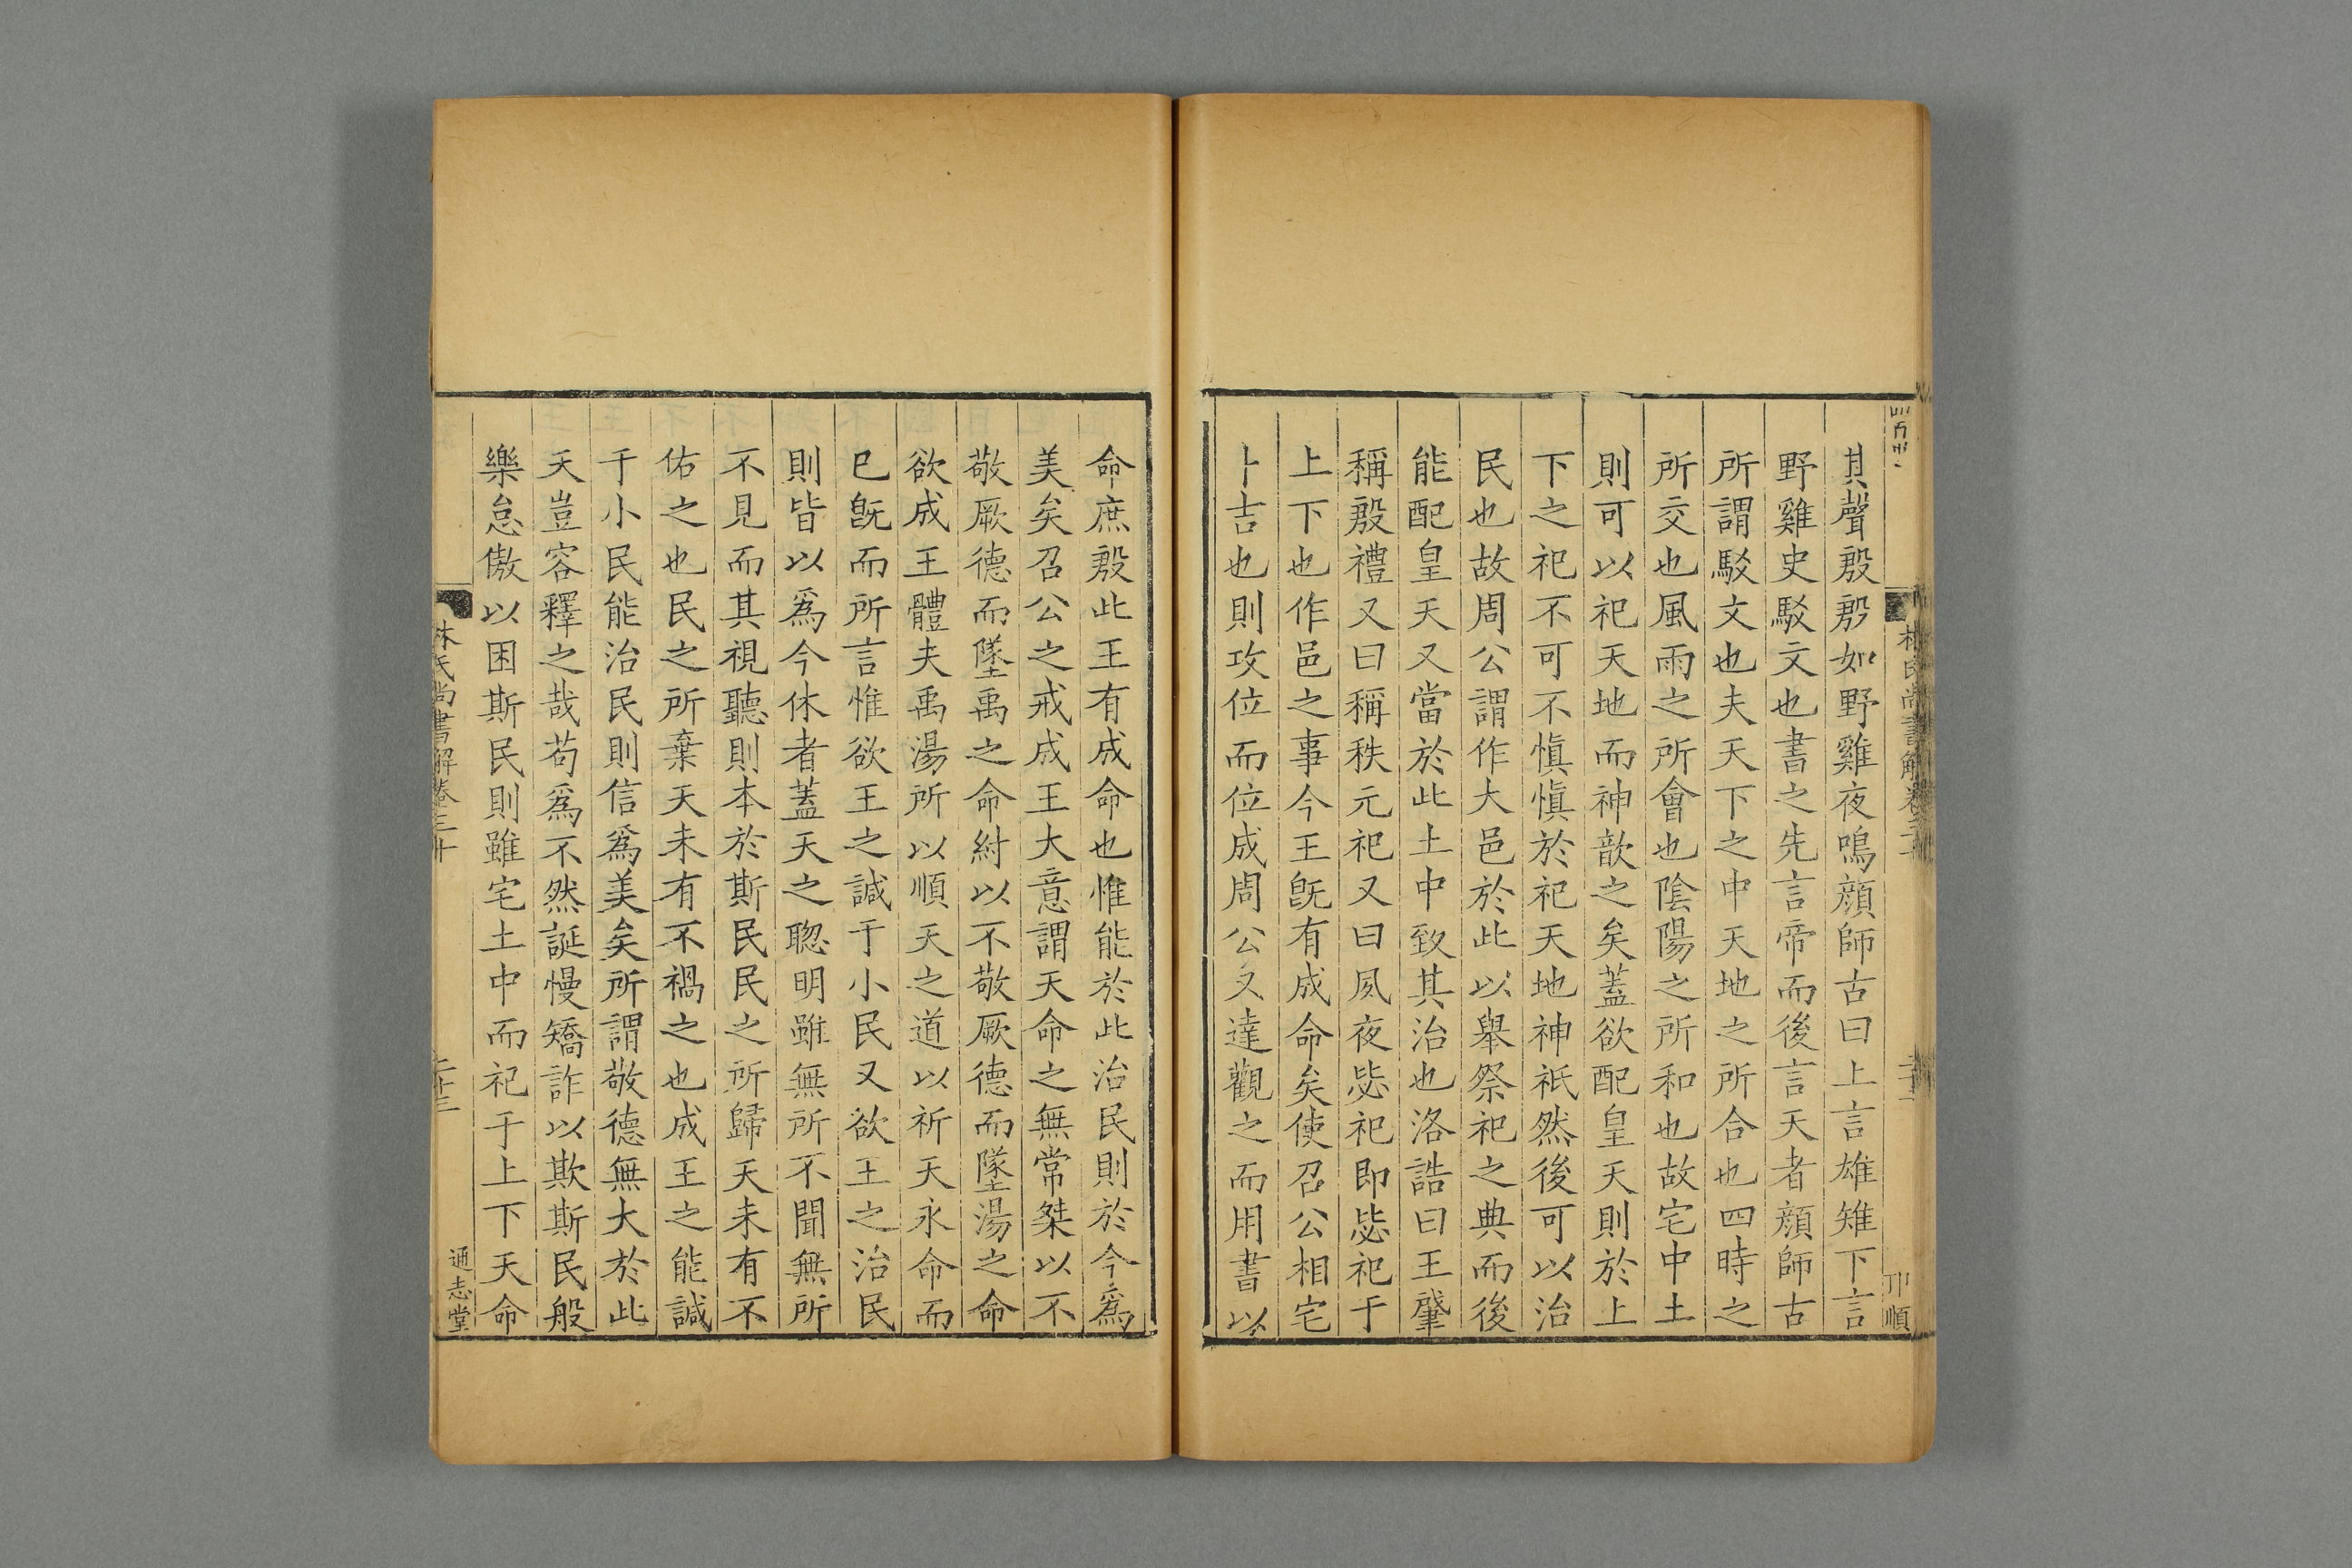 其聲殷殷如野雞夜鳴顔師古曰上言雄雉下言
野雞史駁文也書之先言帝而後言天者顔師古
所謂駁文也夫天下之中天地之所合也四時之
所交也風雨之所會也陰陽之所和也故宅中土
則可以祀天地而神歆之矣蓋欲配皇天則於上
下之祀不可不愼愼於祀天地神祇然後可以治
民也故周公謂作大邑於此以舉祭祀之典而後
能配皇天又當於此土中致其治也洛誥曰王肇
稱殷禮又曰稱秩元祀又曰夙夜毖祀即毖祀于
上下也作邑之事今王旣有成命矣使召公相宅
卜吉也則攻位而位成周公又達觀之而用書以
命庶殷此王有成命也惟能於此治民則於今爲
美矣召公之戒成王大意謂天命之無常桀以不
敬厥德而墜禹之命紂以不敬厥德而墜湯之命
欲成王體夫禹湯所以順天之道以祈天永命而
已旣而所言惟欲王之諴于小民又欲王之治民
則皆以爲今休者蓋天之聦明雖無所不聞無所
不見而其視聽則本於斯民民之所歸天未有不
佑之也民之所棄天未有不禍之也成王之能諴
于小民能治民則信爲美矣所謂敬德無大於此
天豈容釋之哉苟爲不然誕慢矯詐以欺斯民般
樂怠傲以困斯民則雖宅土中而祀于上下天命
林氏尚書解卷三十
二十三
通志堂